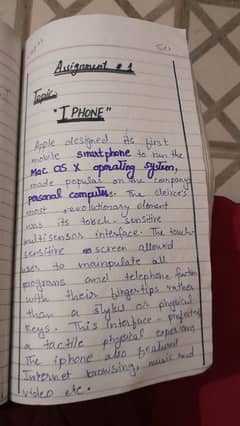 Assignment # 1
Topic:
"I PHONE"
Apple designed its first
mobile smartphone to run the
Mac OS X operating system,
made popular on the company
personal computer. The device's
most revolutionary element
was its touch-sensitive
multisensor interface. The touch-
sensitive screen allowed
user to manipulate all
programs and telephone function
with their fingertips rather
than a stylus or physical
keys. This interface - perfected
a tactile physical experience
The iphone also featured
Internet browsing, music and
video etc.